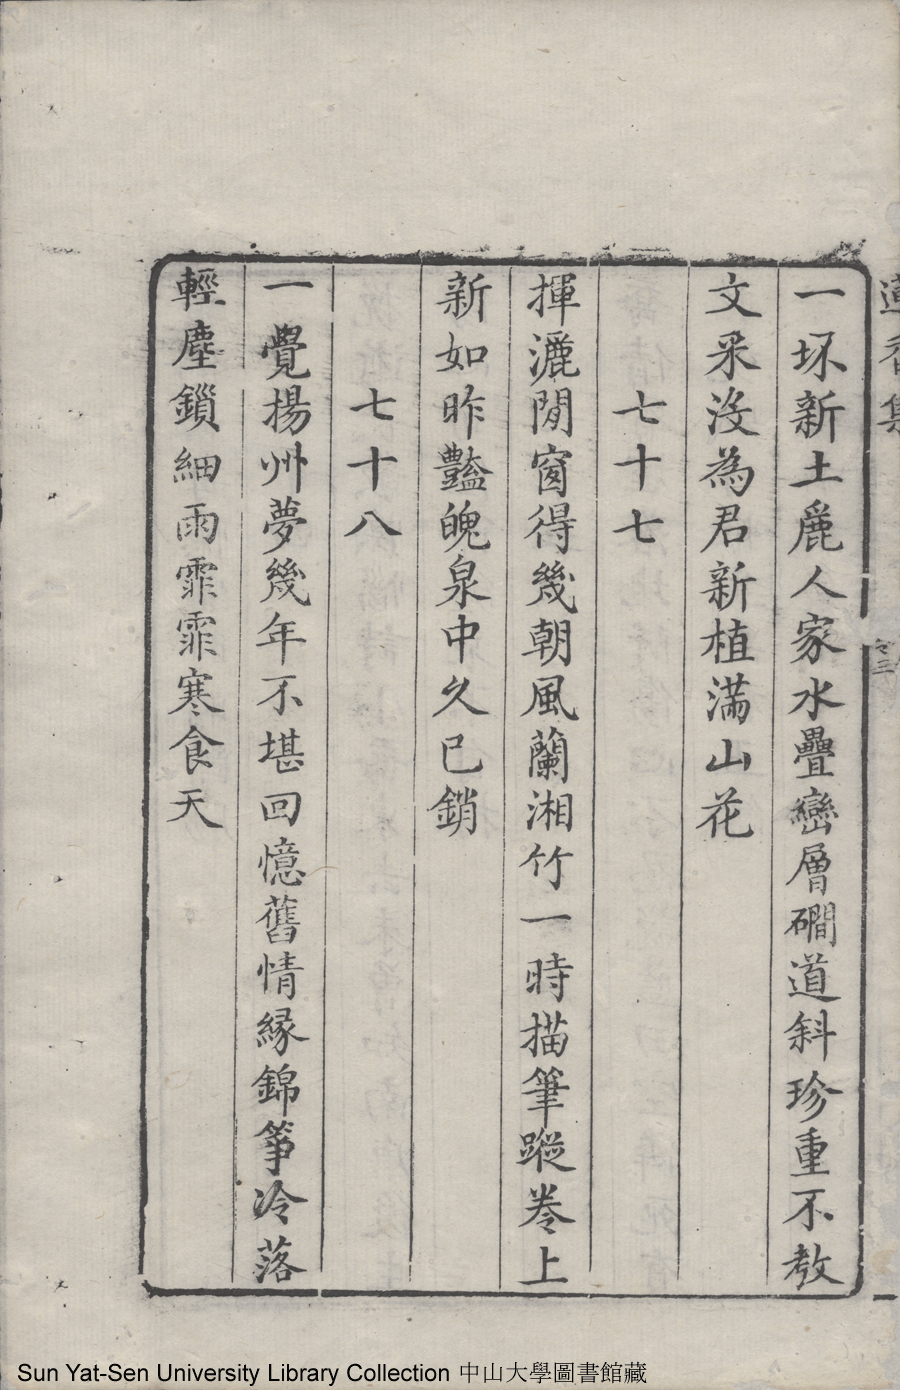 蓮香集
一坏新土麗人家水疊巒層磵道斜珍重不教
文采沒為君新植滿山花
七十七
揮灑閒窗得幾朝風蘭湘竹一時描筆蹤卷上
新如昨豔魄泉中久已銷
七十八
一覺揚州夢幾年不堪回憶舊情縁錦箏冷落
輕塵鎖細雨霏霏寒食天
Sun Yat-Sen University Library Collection 中山大學圖書館藏